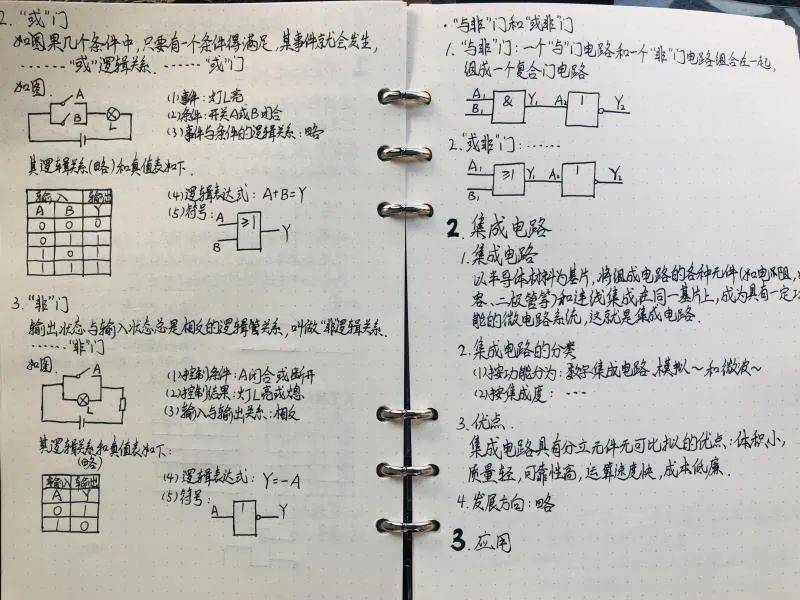 2. "或"门
如图果几个条件中,只要有一个条件得满足,某事件就会发生,
……"或"逻辑关系.……"或"门
如图.
A
B
L
(1)事件:灯L亮
(2)条件:开关A或B闭合
(3)事件与条件的逻辑关系:略
其逻辑关系(略)和真值表如下.
输入 输出
A B Y
0 0 0
0 1 1
1 0 1
1 1 1
(4)逻辑表达式: A+B=Y
(5)符号:
A
B
≥1
Y
3. "非"门
输出状态与输入状态总是相反的逻辑关系,叫做"非"逻辑关系.
……"非"门
如图.
A
L
(1)控制条件:A闭合或断开
(2)控制结果:灯L亮或熄
(3)输入与输出关系:相反
其逻辑关系和真值表如下:
(略)
输入 输出
A Y
0 1
1 0
(4)逻辑表达式: Y=-A
(5)符号:
A 1 Y
·"与非"门和"或非"门
1. "与非"门:一个"与"门电路和一个"非"门电路组合在一起,
组成一个复合门电路
A₁
B₁
& Y₁ A₂ 1 Y₂
2. "或非"门:……
A₁
B₁
≥1 Y₁ A₂ 1 Y₂
2. 集成电路
1. 集成电路
以半导体材料为基片,将组成电路的各种元件(如电阻,电
容、二极管等)和连线集成在同一基片上,成为具有一定功
能的微电路系统,这就是集成电路.
2. 集成电路的分类
(1)按功能分为:数字集成电路、模拟~和微波~
(2)按集成度:---
3. 优点.
集成电路具有分立元件无可比拟的优点:体积小,
质量轻,可靠性高,运算速度快,成本低廉.
4. 发展方向:略
3. 应用